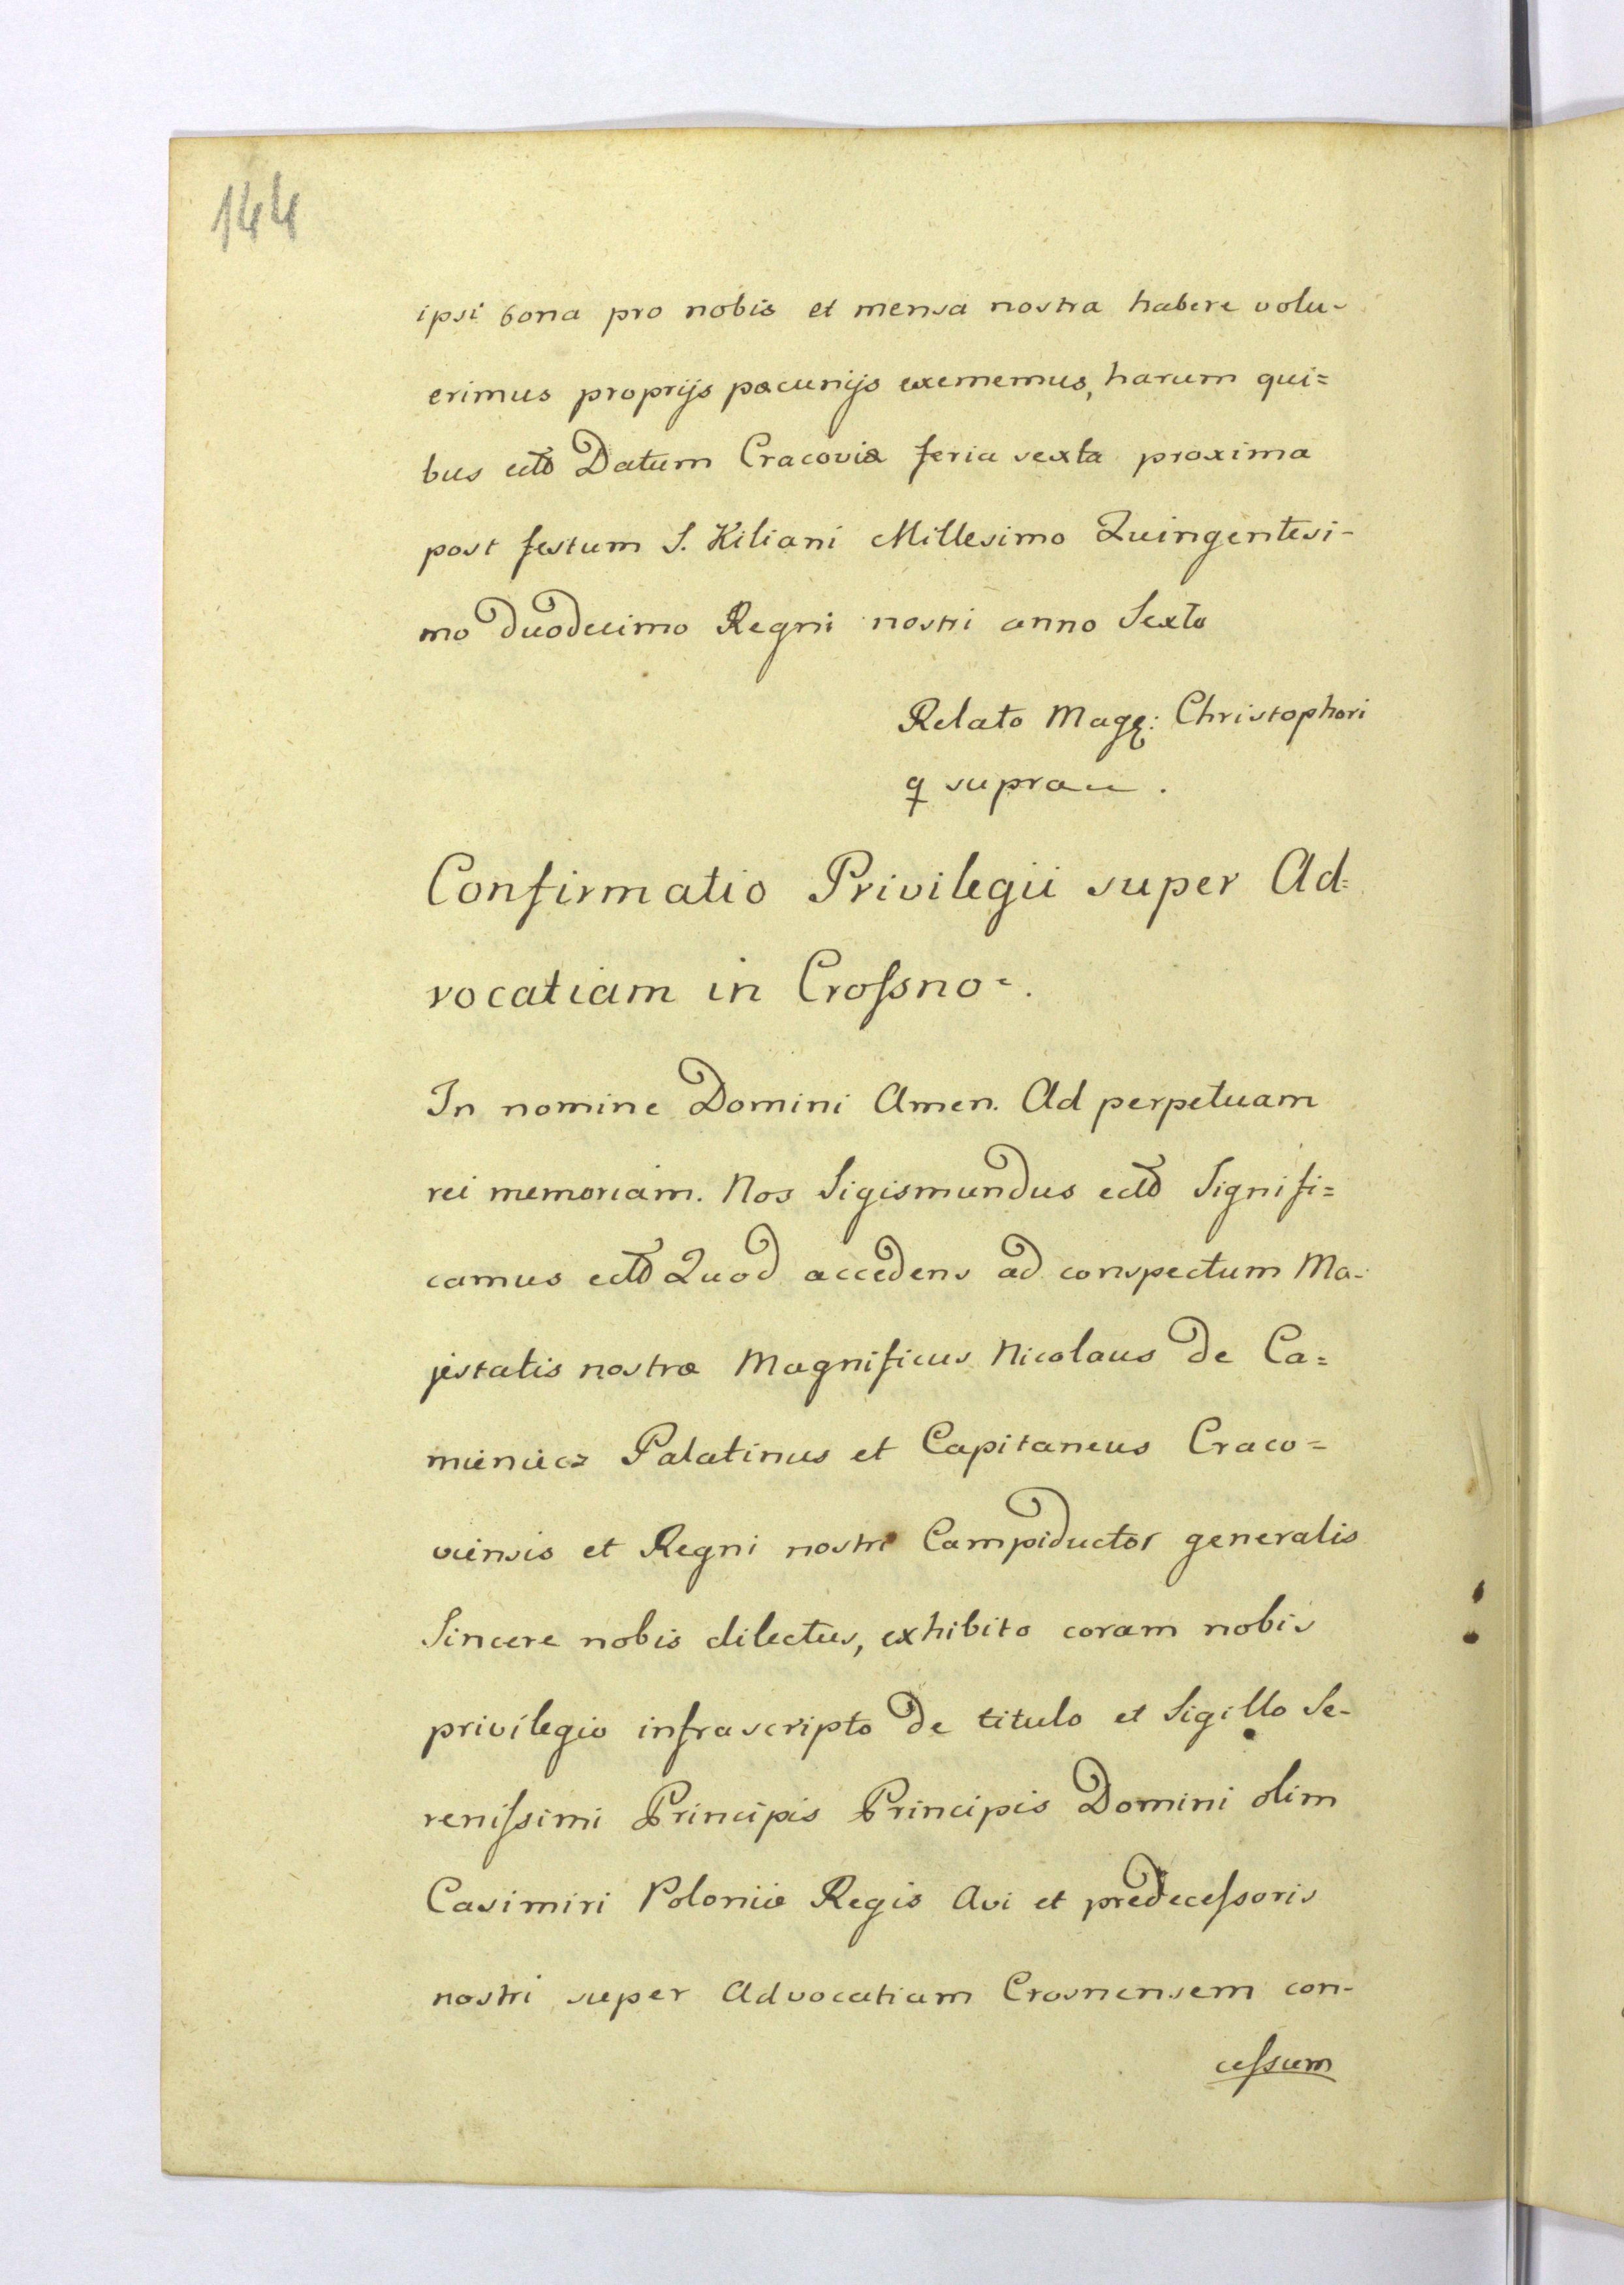 144
ipsi bona pro nobis et mensa nostra habere volu-
erimus proprijs pecunijs exememus, harum qui=
bus ectd Datum Cracoviæ feria sexta proxima
post festum S. Kiliani Millesimo Quingentesi-
mo duodecimo Regni nostri anno Sexto
Relato Christophori
q supra
Confirmatio Privilegii super Ad=
vocatiam in Croſsno
In nomine Domini Amen. Ad perpetuam
rei memoriam. Nos Sigismundus ectd Signifi=
camus ectd Quod accedens ad conspectum Ma-
jestatis nostræ Magnificus Nicolaus de Ca=
mieniecz Palatinus et Capitaneus Craco=
viensis et Regni nostri Campiductor generalis
Sincere nobis dilectus, exhibito coram nobis
privilegio infrascripto de titulo et Sigillo Se-
reniſsimi Principis Principis Domini olim
Casimiri Poloniæ Regis Avi et predeceſsoris
nostri super Advocatiam Crosnensem con-
ceſsum